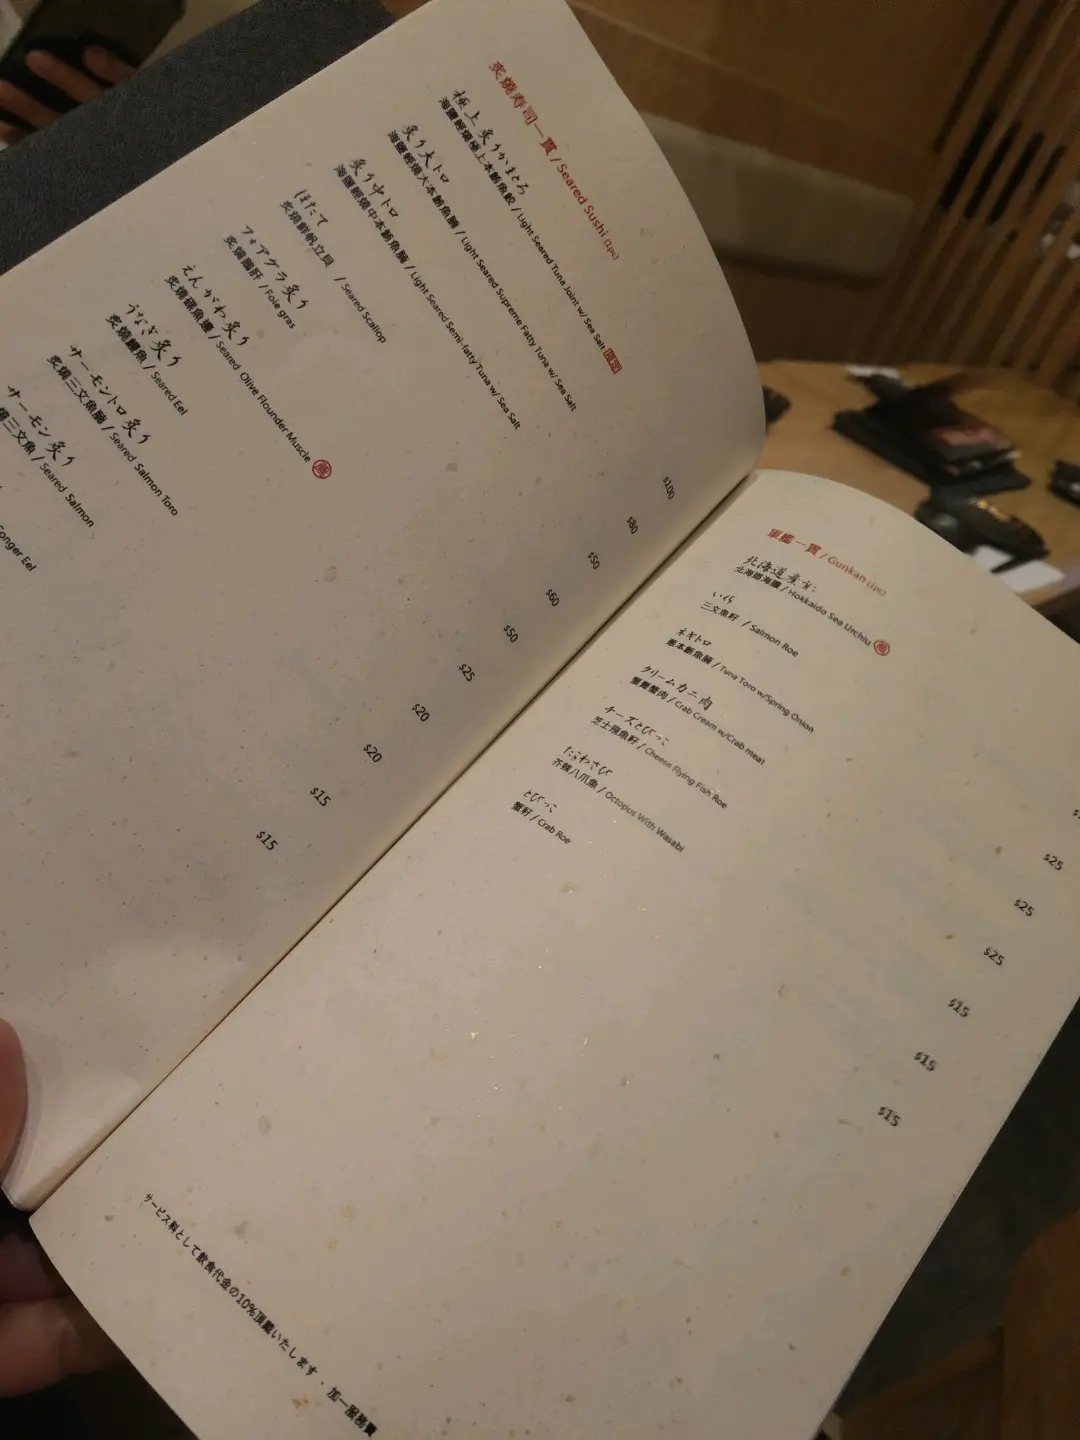 炙燒寿司一貫 / Seared Sushi (1pc)
極上 炙りかまとろ
海鹽輕燒極上本鮪魚鮫 / Light Seared Tuna Joint w/ Sea Salt
$100
炙り大トロ
海鹽輕燒大本鮪魚腩 / Light Seared Supreme Fatty Tuna w/ Sea Salt
$80
炙り中トロ
海鹽輕燒中本鮪魚腩 / Light Seared Semi-fatty Tuna w/ Sea Salt
$50
ほたて
炙燒鮮帆立貝 / Seared Scallop
$60
フォアグラ炙り
炙燒鵝肝 / Foie gras
$50
えんがわ炙り
炙燒碟魚邊 / Seared Olive Flounder Muscle
$25
うなぎ炙り
炙燒鰻魚 / Seared Eel
$20
サーモントロ炙り
炙燒三文魚腩 / Seared Salmon Toro
$20
サーモン炙り
燒三文魚 / Seared Salmon
$15
Conger Eel
$15
軍艦一貫 / Gunkan (1pc)
北海道産
北海道海膽 / Hokkaido Sea Urchiu
いくら
三文魚籽 / Salmon Roe
$25
ネギトロ
葱本鮪魚腩 / Tuna Toro w/Spring Onion
$25
クリームカニ肉
蟹膏蟹肉 / Crab Cream w/Crab meat
$25
チーズとびっこ
芝士飛魚籽 / Cheese Flying Fish Roe
$15
たこわさび
芥辣八爪魚 / Octopus With Wasabi
$15
とびっこ
蟹籽 / Crab Roe
$15
サービス料として飲食代金の10%頂戴いたします · 加一服務費